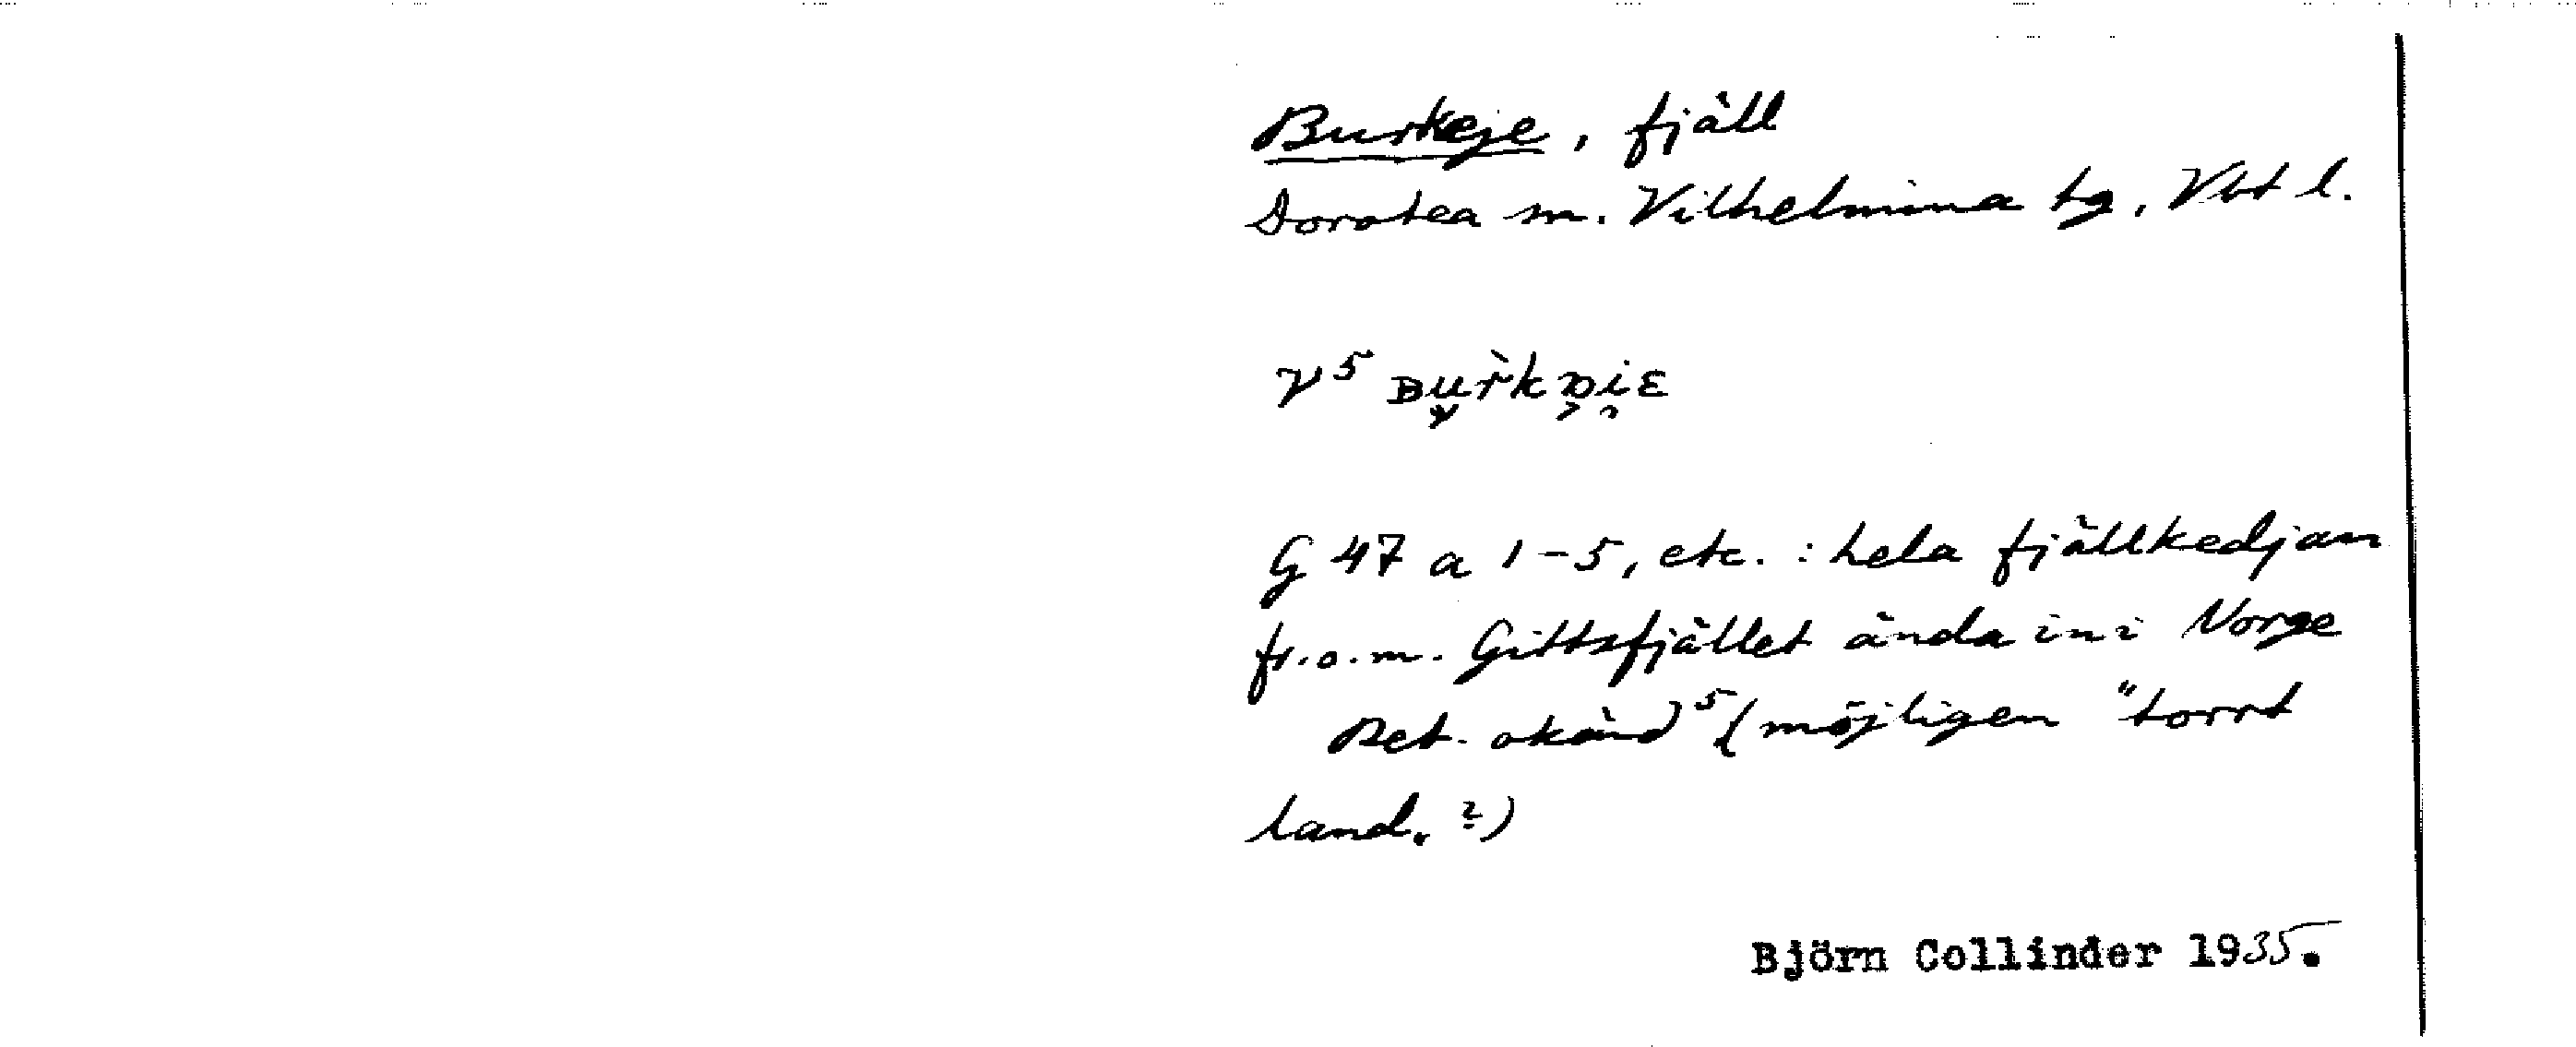 Burkeje, fjäll
Dorotea m. Vilhelmina tg, Vbt l.
V⁵
G 47 a 1-5, etc. : hela fjällkedjan
fr.o.m. Gittsfjället ända in i Norge
Bet. okänd⁵ (möjligen "torrt
land„ ?)
Björn Collinder 1935.